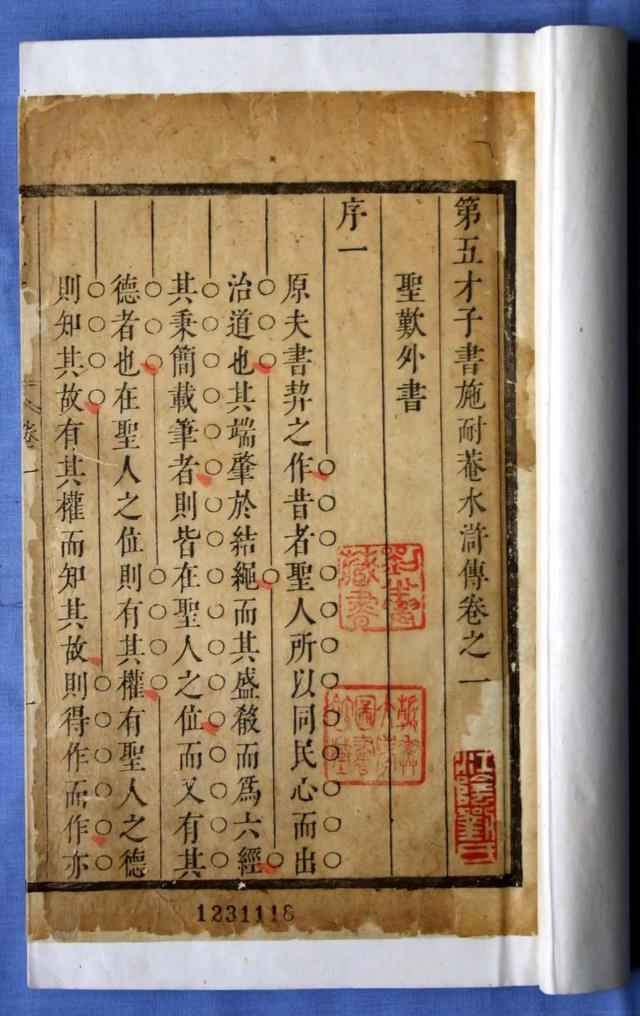 第五才子書施耐菴水滸傳卷之一
聖歎外書
序一
原夫書契之作昔者聖人所以同民心而出
治道也其端肇於結繩而其盛殽而爲六經
其秉簡載筆者則皆在聖人之位而又有其
德者也在聖人之位則有其權有聖人之德
則知其故有其權而知其故則得作而作亦
卷一
藏書
1231118